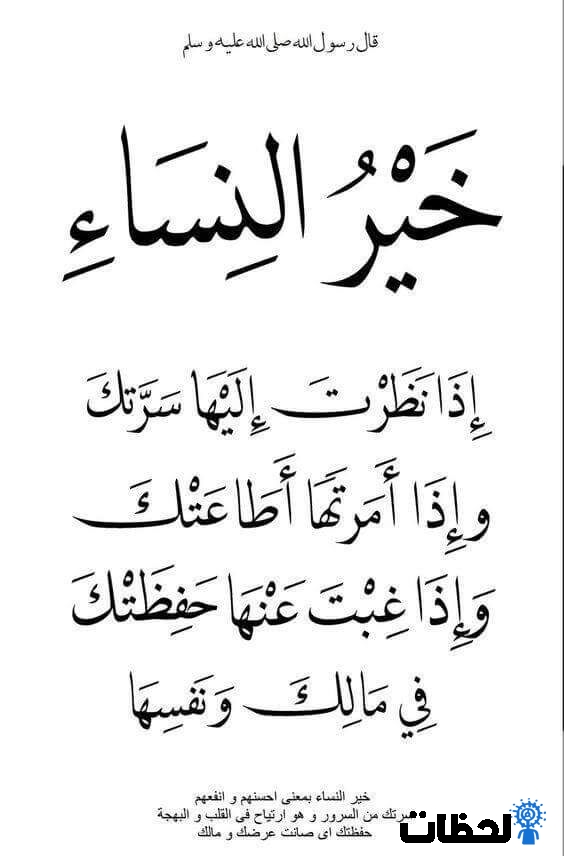 قال رسول الله صلى الله عليه و سلم
خَيْرُ النِسَاءِ
إِذَا نَظَرْتَ إِلَيْهَا سَرَّتكَ
وإِذَا أَمَرتَهَا أَطَاعَتْكَ
وَإِذَا غِبْتَ عَنْهَا حَفِظَتْكَ
فِي مَالِكَ وَنَفسِهَا
خير النساء بمعنى احسنهم و انفعهم
سرتك من السرور و هو ارتياح فى القلب و البهجة
حفظتك اى صانت عرضك و مالك
لحظات